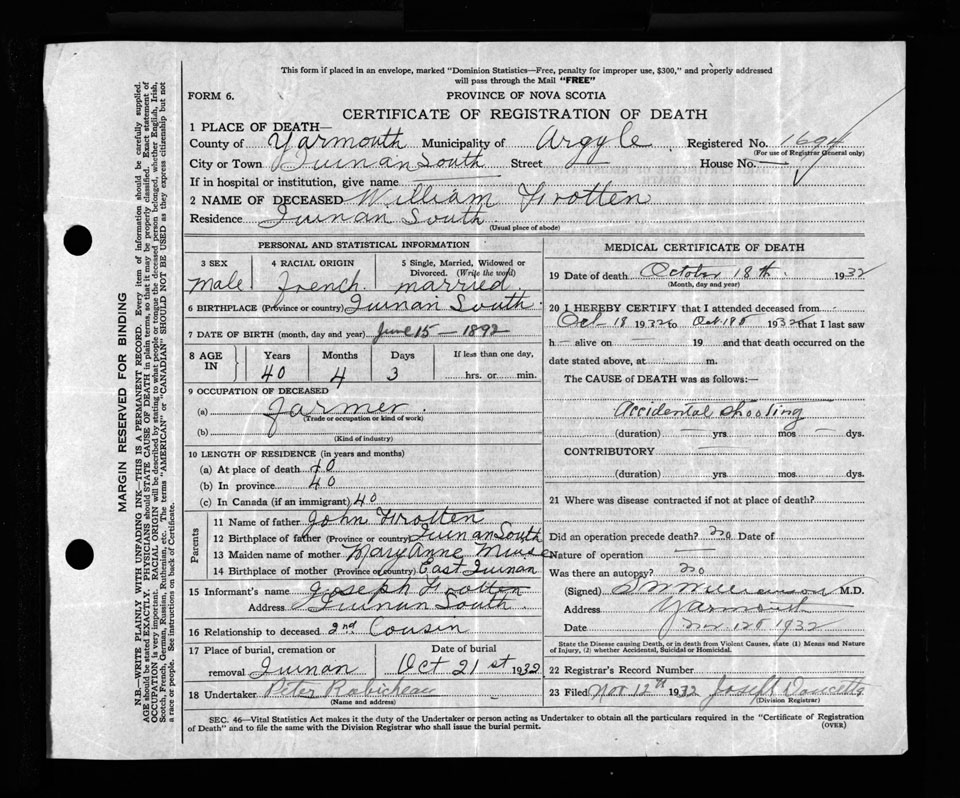 This form if placed in an envelope, marked "Dominion Statistics—Free, penalty for improper use, $300," and properly addressed
will pass through the Mail "FREE"
FORM 6.
PROVINCE OF NOVA SCOTIA
CERTIFICATE OF REGISTRATION OF DEATH
1 PLACE OF DEATH—
County of Yarmouth Municipality of Argyle Registered No. 1694
(For use of Registrar General only)
City or Town Quinan South Street — House No. —
If in hospital or institution, give name
2 NAME OF DECEASED William Frotten
Residence Quinan South
(Usual place of abode)
PERSONAL AND STATISTICAL INFORMATION
3 SEX
Male
4 RACIAL ORIGIN
French
5 Single, Married, Widowed or
Divorced. (Write the word)
married
6 BIRTHPLACE (Province or country) Quinan South
7 DATE OF BIRTH (month, day and year) June 15 — 1892
8 AGE
IN
Years
40
Months
4
Days
3
If less than one day,
hrs. or min.
9 OCCUPATION OF DECEASED
(a) Farmer
(Trade or occupation or kind of work)
(b)
(Kind of industry)
10 LENGTH OF RESIDENCE (in years and months)
(a) At place of death 40
(b) In province 40
(c) In Canada (if an immigrant) 40
Parents
11 Name of father John Frotten
12 Birthplace of father (Province or country) Quinan South
13 Maiden name of mother Mary Anne Muise
14 Birthplace of mother (Province or country) East Quinan
15 Informant's name Joseph Frotten
Address Quinan South
16 Relationship to deceased 2nd Cousin
17 Place of burial, cremation or
removal Quinan
Date of burial
Oct 21st 1932
18 Undertaker Peter Robicheau
(Name and address)
MEDICAL CERTIFICATE OF DEATH
19 Date of death October 18th 1932
(Month, day and year)
20 I HEREBY CERTIFY that I attended deceased from
Oct 18 1932 to Oct 18 1932 that I last saw
h — alive on — 19 and that death occurred on the
date stated above, at m.
The CAUSE of DEATH was as follows:—
Accidental shooting
(duration) — yrs. — mos. — dys.
CONTRIBUTORY —
(duration) yrs. mos. dys.
21 Where was disease contracted if not at place of death?
Did an operation precede death? no Date of
Nature of operation —
Was there an autopsy? no
(Signed) Williamson M.D.
Address Yarmouth
Date Nov. 12 1932
State the Disease causing Death, or in death from Violent Causes, state (1) Means and Nature
of Injury, (2) whether Accidental, Suicidal or Homicidal.
22 Registrar's Record Number
23 Filed Nov 12th 1932 Joseph Doucette
(Division Registrar)
SEC. 46—Vital Statistics Act makes it the duty of the Undertaker or person acting as Undertaker to obtain all the particulars required in the "Certificate of Registration
of Death" and to file the same with the Division Registrar who shall issue the burial permit.
(OVER)
MARGIN RESERVED FOR BINDING
N.B.—WRITE PLAINLY WITH UNFADING INK—THIS IS A PERMANENT RECORD. Every item of information should be carefully supplied.
AGE should be stated EXACTLY. PHYSICIANS should STATE CAUSE OF DEATH in plain terms, so that it may be properly classified. Exact statement of
OCCUPATION is very important. RACIAL ORIGIN will be described by stating to what people or tongue the deceased person belonged, whether English, Irish,
Scotch, French, German, Russian, Ruthenian, etc. The terms "AMERICAN" or "CANADIAN" SHOULD NOT BE USED as they express citizenship but not
a race or people. See instructions on back of Certificate.